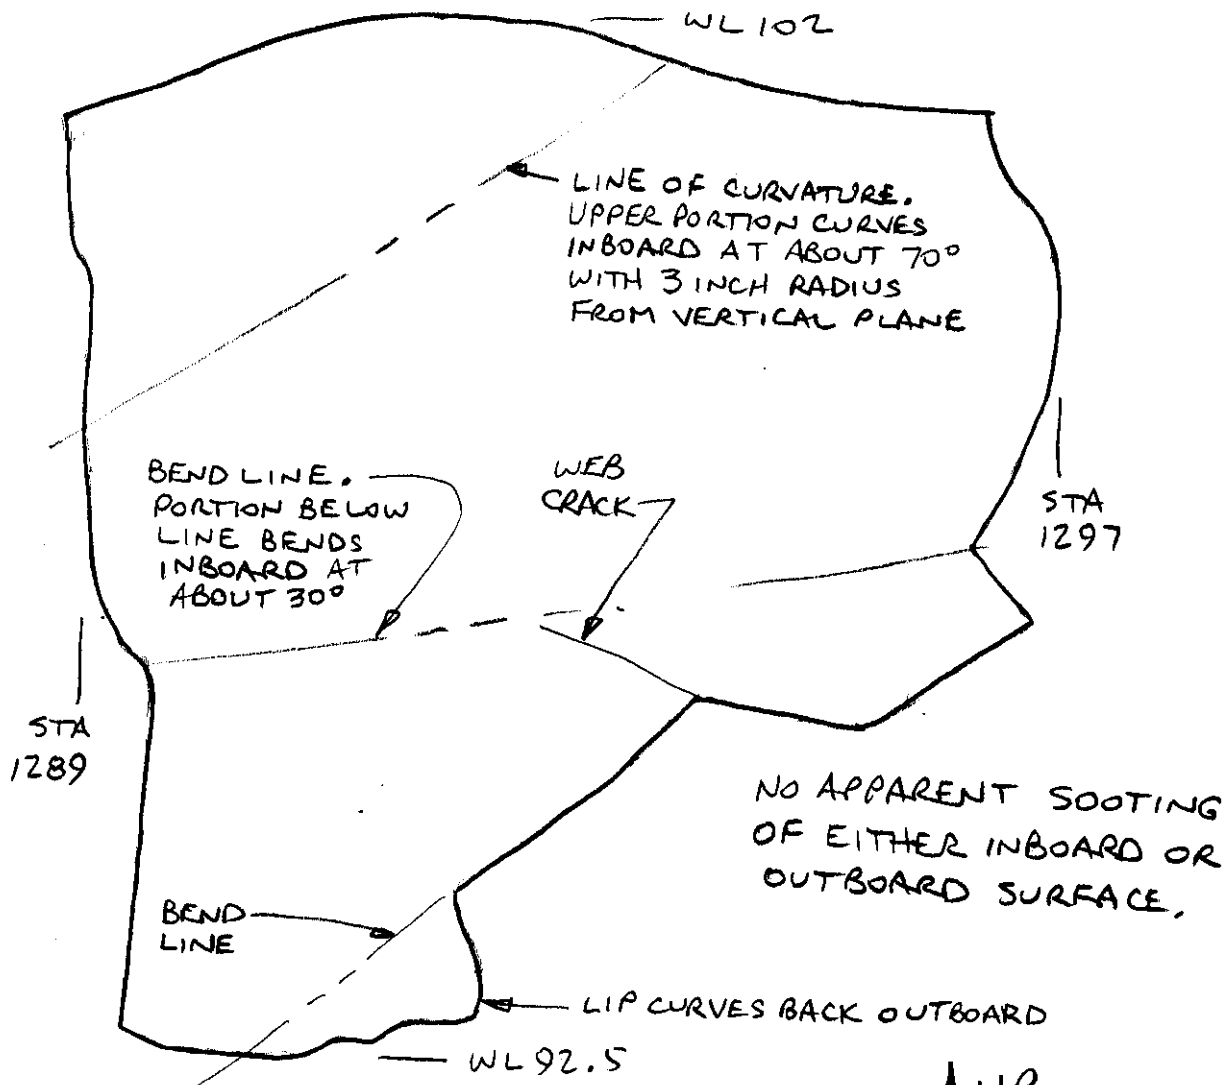 WL 102
LINE OF CURVATURE.
UPPER PORTION CURVES
INBOARD AT ABOUT 70°
WITH 3 INCH RADIUS
FROM VERTICAL PLANE
BEND LINE.
PORTION BELOW
LINE BENDS
INBOARD AT
ABOUT 30°
WEB
CRACK
STA
1297
STA
1289
NO APPARENT SOOTING
OF EITHER INBOARD OR
OUTBOARD SURFACE.
BEND
LINE
LIP CURVES BACK OUTBOARD
WL 92.5